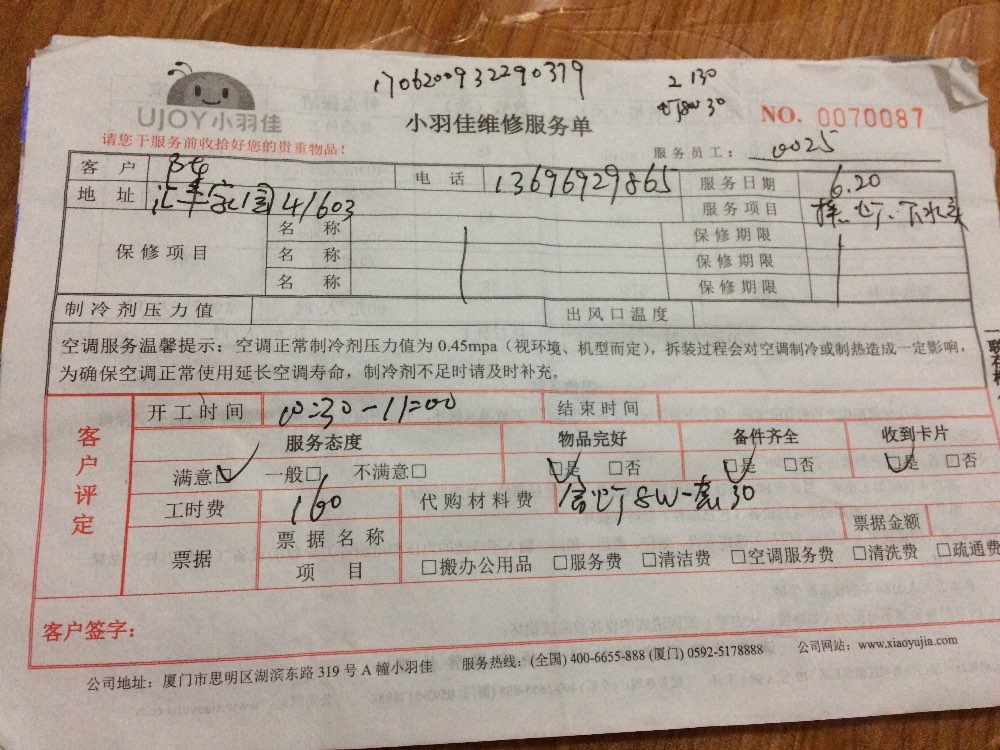 170620093229 0379
2 130
灯8W 30
UJOY小羽佳
小羽佳维修服务单
NO. 0070087
请您于服务前收拾好您的贵重物品！
服务员工： 0025
客 户 电 话 13696929865 服务日期 6.20
地 址 41603 服务项目 换 灯、下水
保修项目 名 称 保修期限
名 称 保修期限
名 称 保修期限
制冷剂压力值 出风口温度
空调服务温馨提示：空调正常制冷剂压力值为 0.45mpa（视环境、机型而定），拆装过程会对空调制冷或制热造成一定影响，
为确保空调正常使用延长空调寿命，制冷剂不足时请及时补充。
客户评定
开工时间 10:30-11:00 结束时间
服务态度 物品完好 备件齐全 收到卡片
满意□ 一般□ 不满意□ □是 □否 □是 □否 □是 □否
工时费 160 代购材料费 灯8W一套30
票据 票据名称 票据金额
项 目 □搬办公用品 □服务费 □清洁费 □空调服务费 □清洗费 □疏通费
客户签字：
公司地址：厦门市思明区湖滨东路 319 号 A 幢小羽佳 服务热线：(全国) 400-6655-888 (厦门) 0592-5178888 公司网站：www.xiaoyujia.com